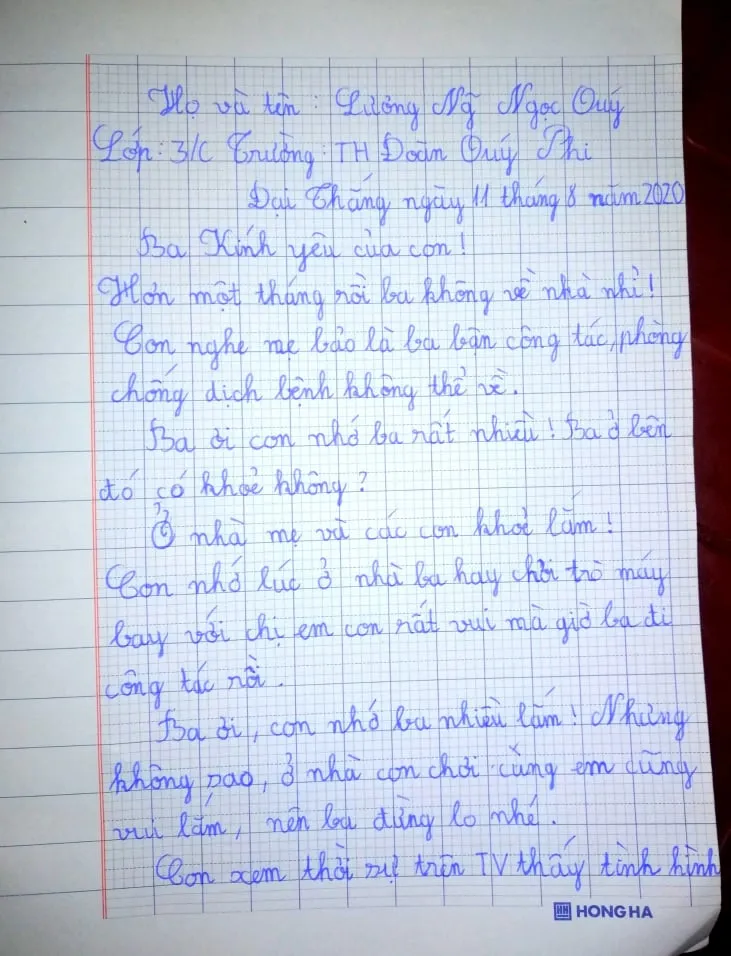 Họ và tên : Lương Mỹ Ngọc Quý
Lớp : 3/C Trường : TH Đoàn Quý Phi
Đại Thắng ngày 11 tháng 8 năm 2020
Ba Kính yêu của con !
Hơn một tháng rồi ba không về nhà nhỉ !
Con nghe mẹ bảo là ba bận công tác, phòng
chống dịch bệnh không thể về.
Ba ơi con nhớ ba rất nhiều ! Ba ở bên
đó có khoẻ không ?
Ở nhà mẹ và các con khoẻ lắm !
Con nhớ lúc ở nhà ba hay chơi trò máy
bay với chị em con rất vui mà giờ ba đi
công tác rồi .
Ba ơi, con nhớ ba nhiều lắm ! Nhưng
không sao, ở nhà con chơi cùng em cũng
vui lắm, nên ba đừng lo nhé .
Con xem thời sự trên TV thấy tình hình
HONG HA